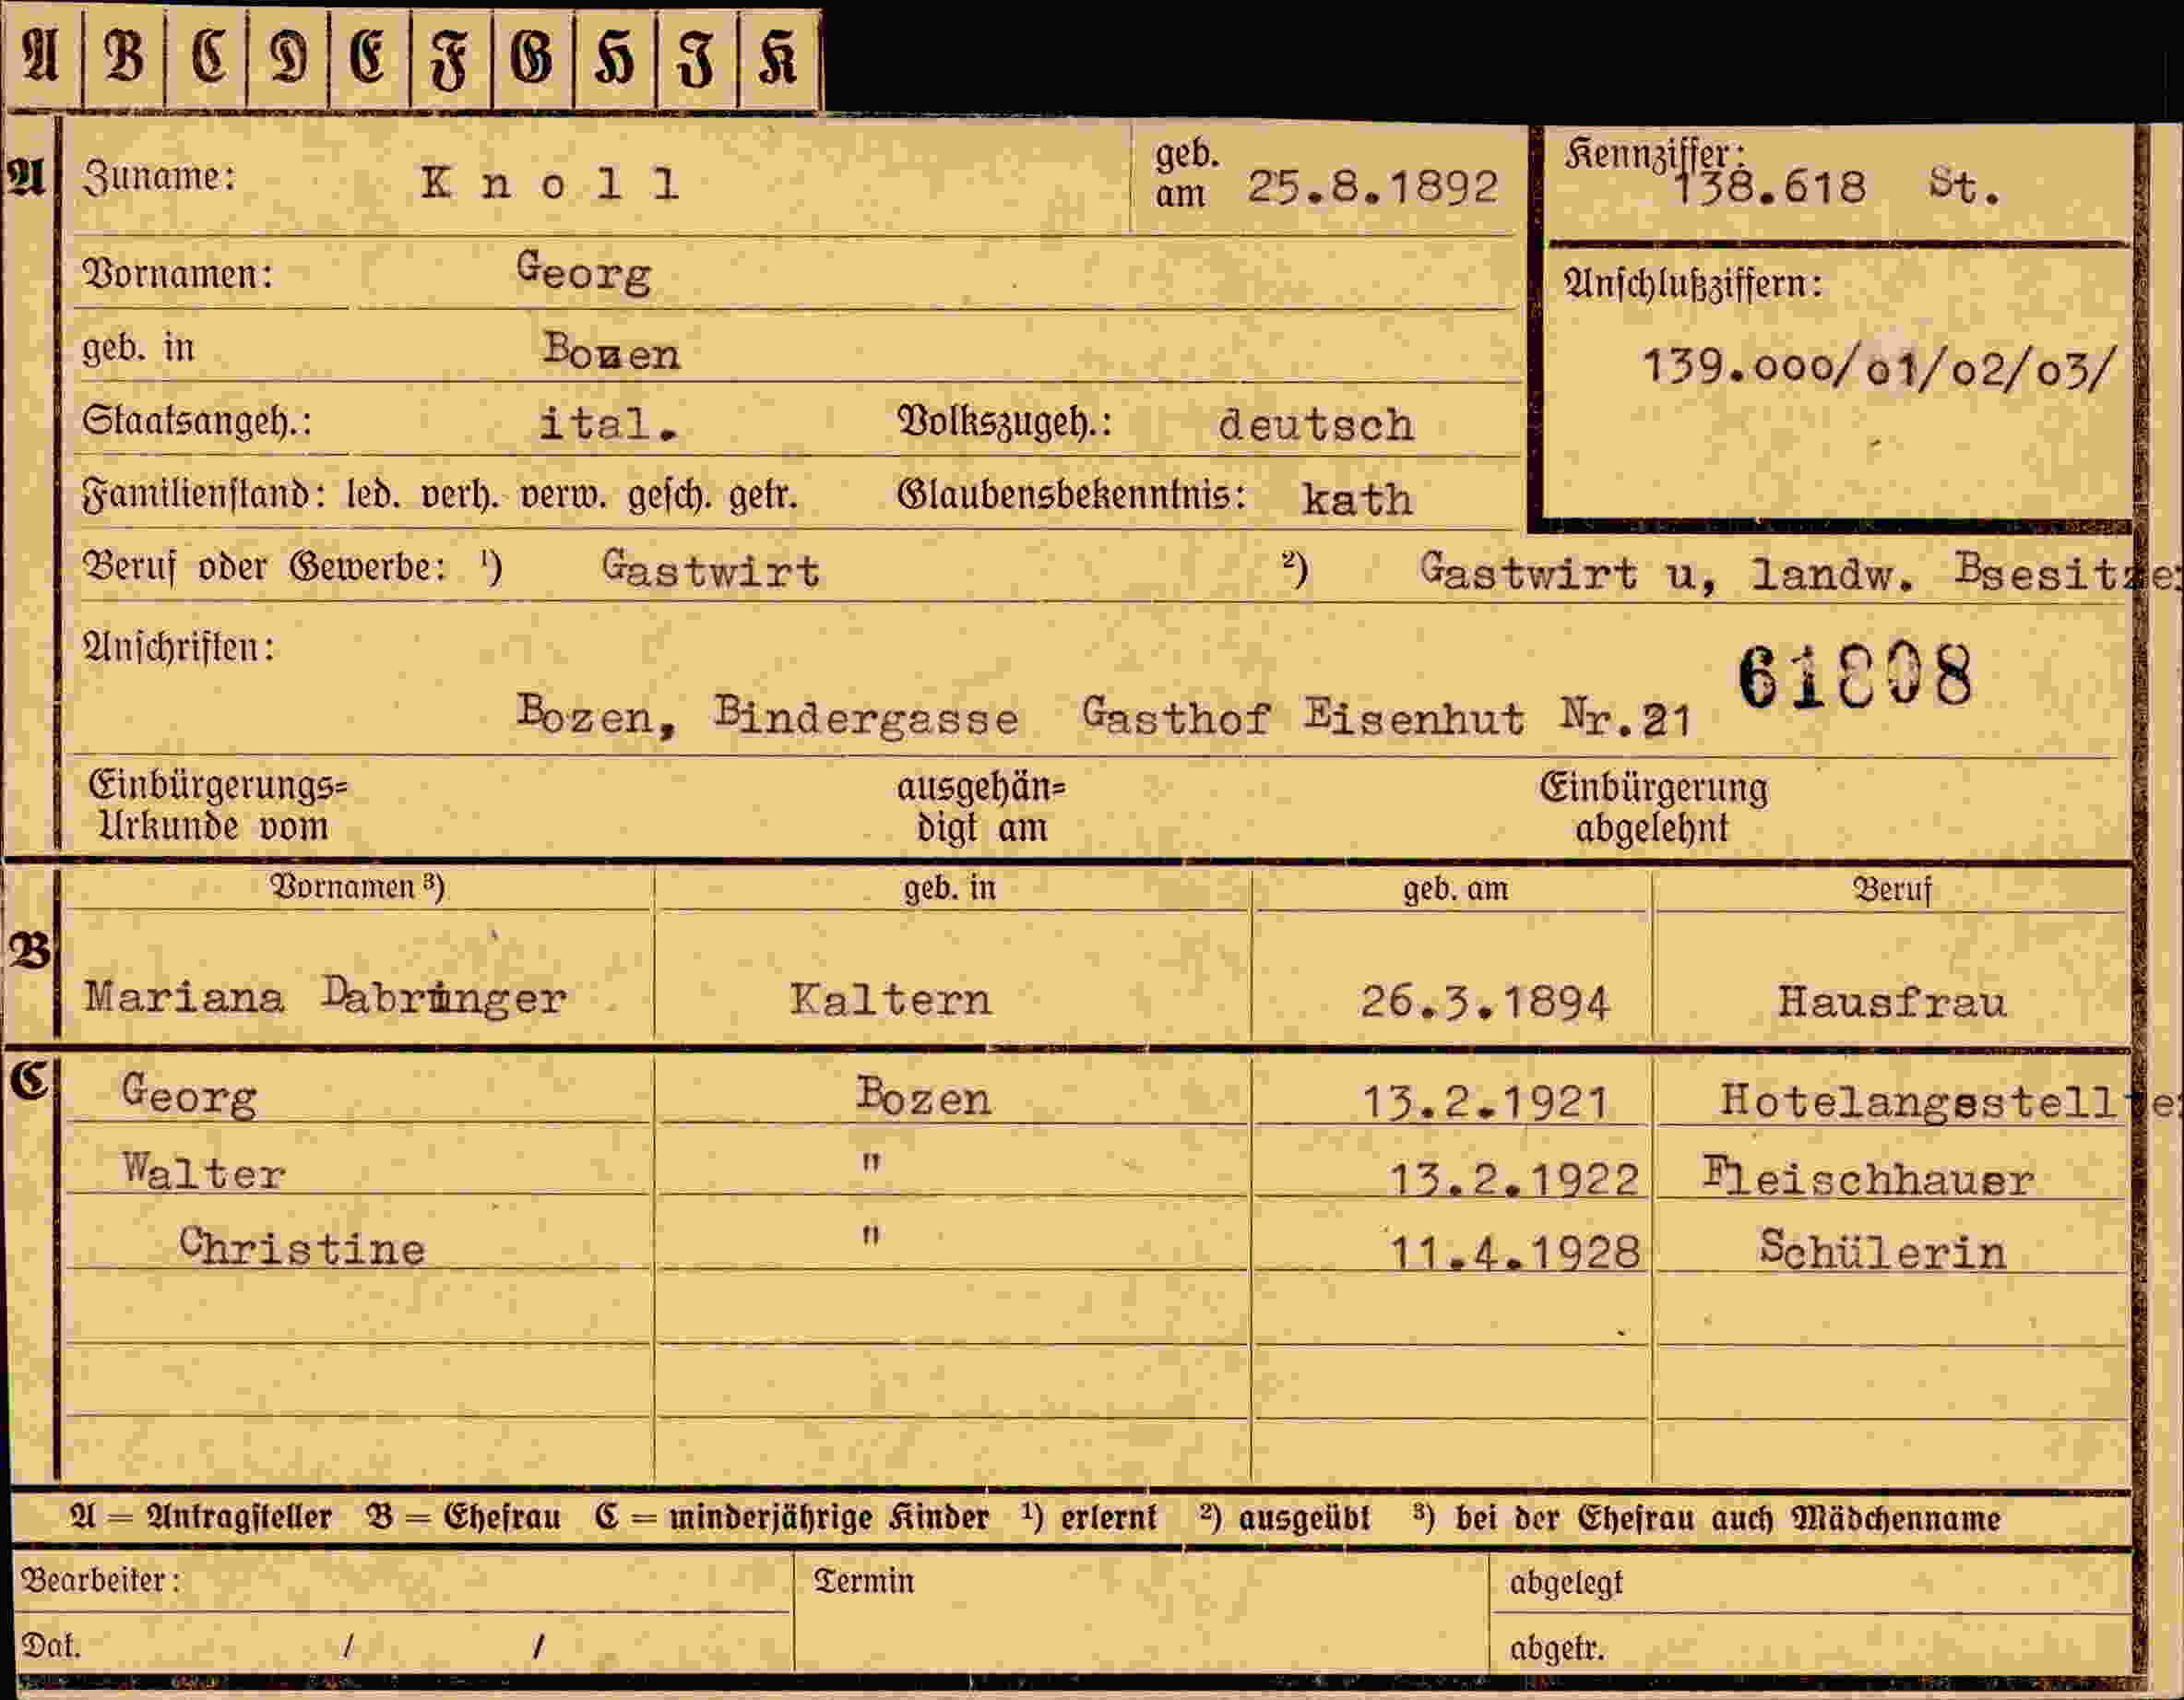 A B C D E F G H I K
A Zuname: K n o l l geb. am 25.8.1892 Kennziffer: 138.618 St.
Vornamen: Georg Anschlußziffern:
geb. in Bozen 139.000/01/02/03/
Staatsangeh.: ital. Volkszugeh.: deutsch
Familienstand: led. verh. verw. gesch. getr. Glaubensbekenntnis: kath
Beruf oder Gewerbe: ¹) Gastwirt ²) Gastwirt u, landw. Bsesitze
Anschriften: 61808
Bozen, Bindergasse Gasthof Eisenhut Nr.21
Einbürgerungs= ausgehän= Einbürgerung
Urkunde vom digt am abgelehnt
Vornamen ³) geb. in geb. am Beruf
B
Mariana Kaltern 26.3.1894 Hausfrau
C Georg Bozen 13.2.1921 Hotelangsstellte
Walter " 13.2.1922 Fleischhauer
Christine " 11.4.1928 Schülerin
A = Antragsteller B = Ehefrau C = minderjährige Kinder ¹) erlernt ²) ausgeübt ³) bei der Ehefrau auch Mädchenname
Bearbeiter: Termin abgelegt
Dat. / / abgetr.